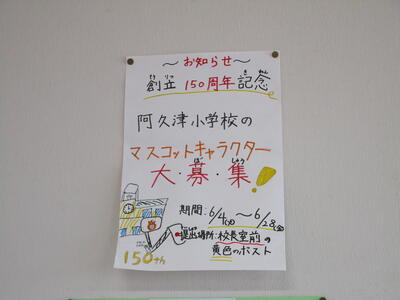 ～お知らせ～
創立150周年記念
阿久津小学校の
マスコットキャラクター
大・募・集!
期間:6/4(火)～6/28(金)
提出場所:校長室前の
黄色のポスト
150th